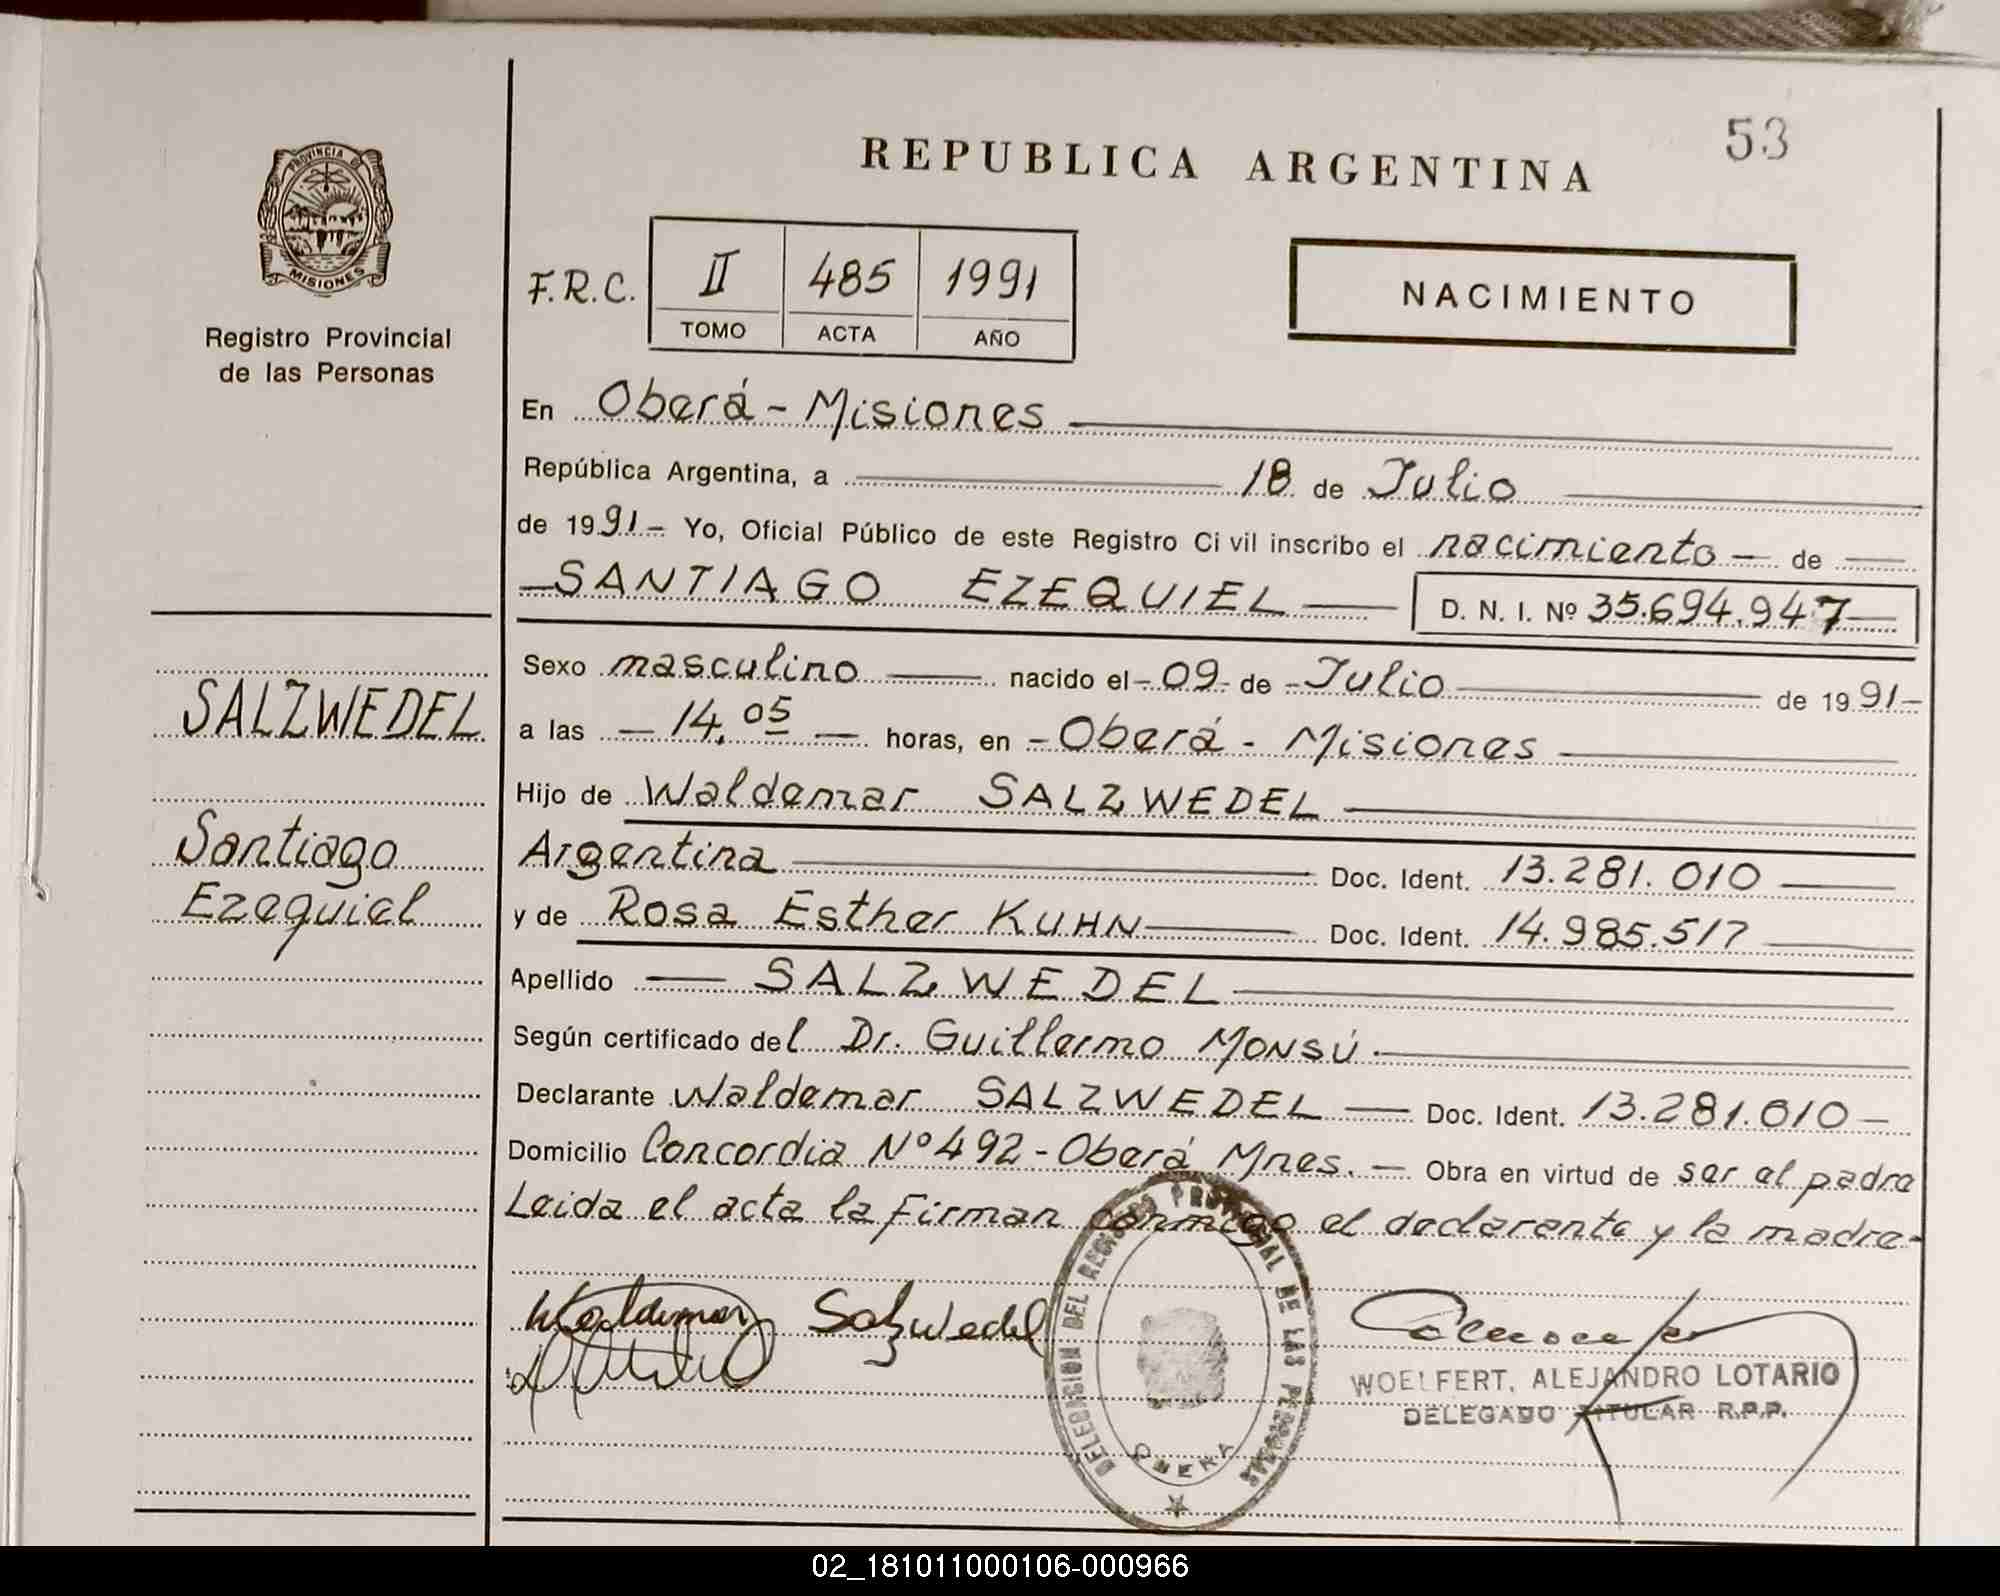 53
REPUBLICA ARGENTINA
PROVINCIA DE
MISIONES
Registro Provincial
de las Personas
F.R.C.
II 485 1991
TOMO ACTA AÑO
NACIMIENTO
En Oberá - Misiones
República Argentina, a 18 de Julio
de 1991.- Yo, Oficial Público de este Registro Civil inscribo el nacimiento de
SANTIAGO EZEQUIEL D. N. I. Nº 35.694.947
SALZWEDEL
Santiago
Ezequiel
Sexo masculino nacido el - 09 - de - Julio de 1991-
a las - 14,05 - horas, en - Oberá - Misiones
Hijo de Waldemar SALZWEDEL
Argentina Doc. Ident. 13.281.010
y de Rosa Esther KUHN Doc. Ident. 14.985.517
Apellido SALZWEDEL
Según certificado del Dr. Guillermo MONSÚ.
Declarante Waldemar SALZWEDEL Doc. Ident. 13.281.010
Domicilio Concordia Nº 492 - Oberá Mnes. - Obra en virtud de ser el padre
Leida el acta la firman conmigo el declarante y la madre-
Waldemar Salzwedel
DELEGACION DEL REGISTRO PROVINCIAL DE LAS PERSONAS
OBERA
WOELFERT, ALEJANDRO LOTARIO
DELEGADO TITULAR R.P.P.
02_181011000106-000966